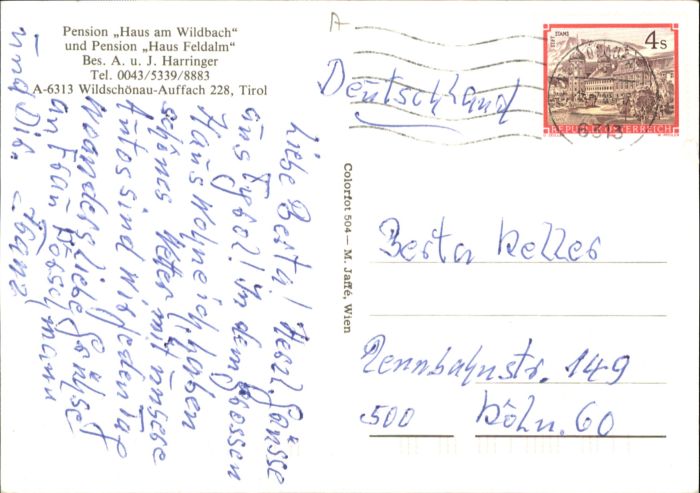 Pension „Haus am Wildbach"
und Pension „Haus Feldalm"
Bes. A. u. J. Harringer
Tel. 0043/5339/8883
A-6313 Wildschönau-Auffach 228, Tirol
Liebe Berta! Herzl. Grüsse
aus Tyrol! In dem grossen
Haus wohne ich, haben
schönes Weter mit unsere
Autos sind wir jeden Tag
woanders. Liebe Grüße
an Frau
und Dir. Franz
Colorfot 504 — M. Jaffé, Wien
A
STIFT STAMS
4 S
REPUBLIK ÖSTERREICH
6313
Deutschland
Berta Keller
Rennbahnstr. 149
500 Köln. 60